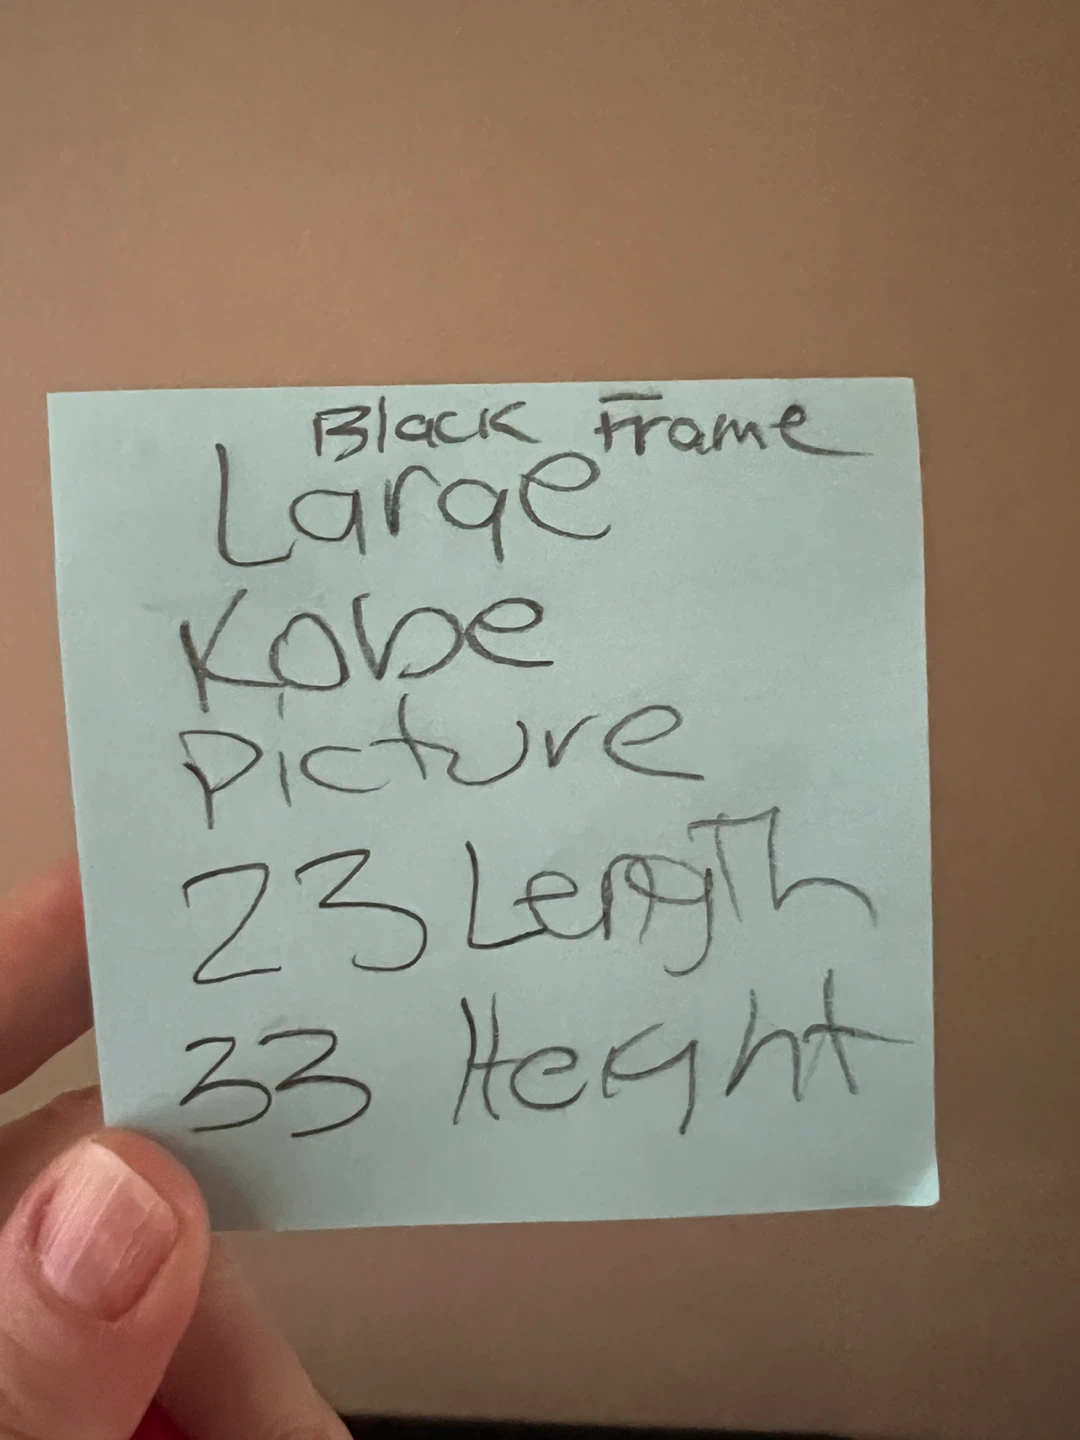 Black Frame
Large
Kobe
Picture
23 Length
33 Height